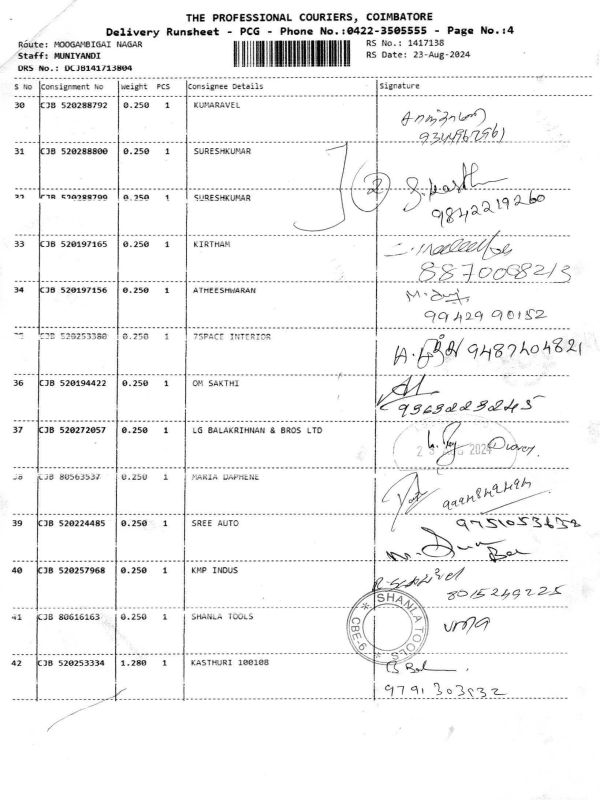 THE PROFESSIONAL COURIERS, COIMBATORE
Delivery Runsheet - PCG - Phone No.:0422-3505555 - Page No.:4
Route: MOOGAMBIGAI NAGAR RS No.: 1417138
Staff: MUNIYANDI RS Date: 23-Aug-2024
DRS No.: DCJB141713804
S No Consignment No Weight PCS Consignee Details Signature
30 CJB 520288792 0.250 1 KUMARAVEL
9344967961
31 CJB 520288800 0.250 1 SURESHKUMAR
2
32 CJB 520288799 0.250 1 SURESHKUMAR
9842219260
33 CJB 520197165 0.250 1 KIRTHAM
8870098213
34 CJB 520197156 0.250 1 ATHEESHWARAN
99429 90152
35 CJB 520253380 0.250 1 7SPACE INTERIOR 9487404821
36 CJB 520194422 0.250 1 OM SAKTHI
9363223245
37 CJB 520272057 0.250 1 LG BALAKRIHNAN & BROS LTD
AUG 2024
38 CJB 80563537 0.250 1 MARIA DAPHENE
39 CJB 520224485 0.250 1 SREE AUTO 9751053632
40 CJB 520257968 0.250 1 KMP INDUS
8015249225
41 CJB 80616163 0.250 1 SHANLA TOOLS
SHANLA TOOLS
CBE-6
42 CJB 520253334 1.280 1 KASTHURI 100108
9791303932